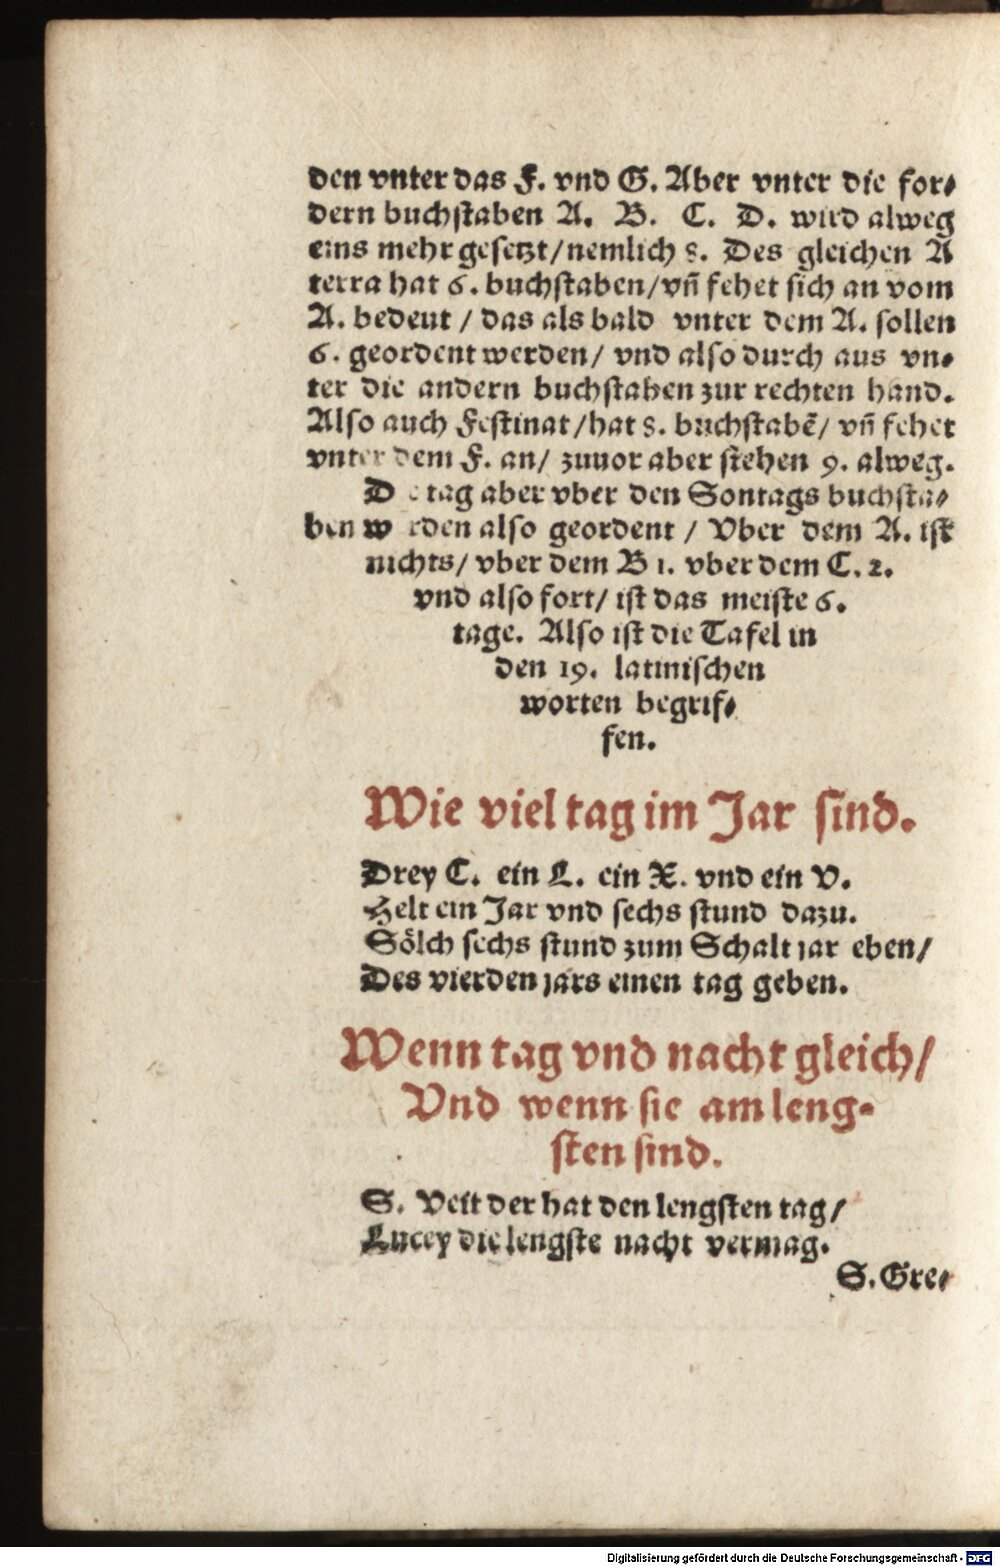 den vnter das F. vnd G. Aber vnter die for⸗
dern buchstaben A. B. C. D. wird alweg
eins mehr gesetzt/nemlich 8. Des gleichen A
terra hat 6. buchstaben/vñ fehet sich an vom
A. bedeut / das als bald vnter dem A. sollen
6. geordent werden/ vnd also durch aus vn⸗
ter die andern buchstaben zur rechten hand.
Also auch Festinat/hat 8. buchstabẽ/ vñ fehet
vnter dem F. an/ zuuor aber stehen 9. alweg.
D e tag aber vber den Sontags buchsta⸗
ben w rden also geordent / Vber dem A. ist
nichts/ vber dem B 1. vber dem C. 2.
vnd also fort/ ist das meiste 6.
tage. Also ist die Tafel in
den 19. latinischen
worten begrif⸗
fen.
Wie viel tag im Jar sind.
Drey C. ein L. ein X. vnd ein V.
Helt ein Jar vnd sechs stund dazu.
Sölch sechs stund zum Schalt jar eben/
Des vierden jars einen tag geben.
Wenn tag vnd nacht gleich/
Vnd wenn sie am leng⸗
sten sind.
S. Veit der hat den lengsten tag/
Lucey die lengste nacht vermag.
S. Gre⸗
Digitalisierung gefördert durch die Deutsche Forschungsgemeinschaft - DFG